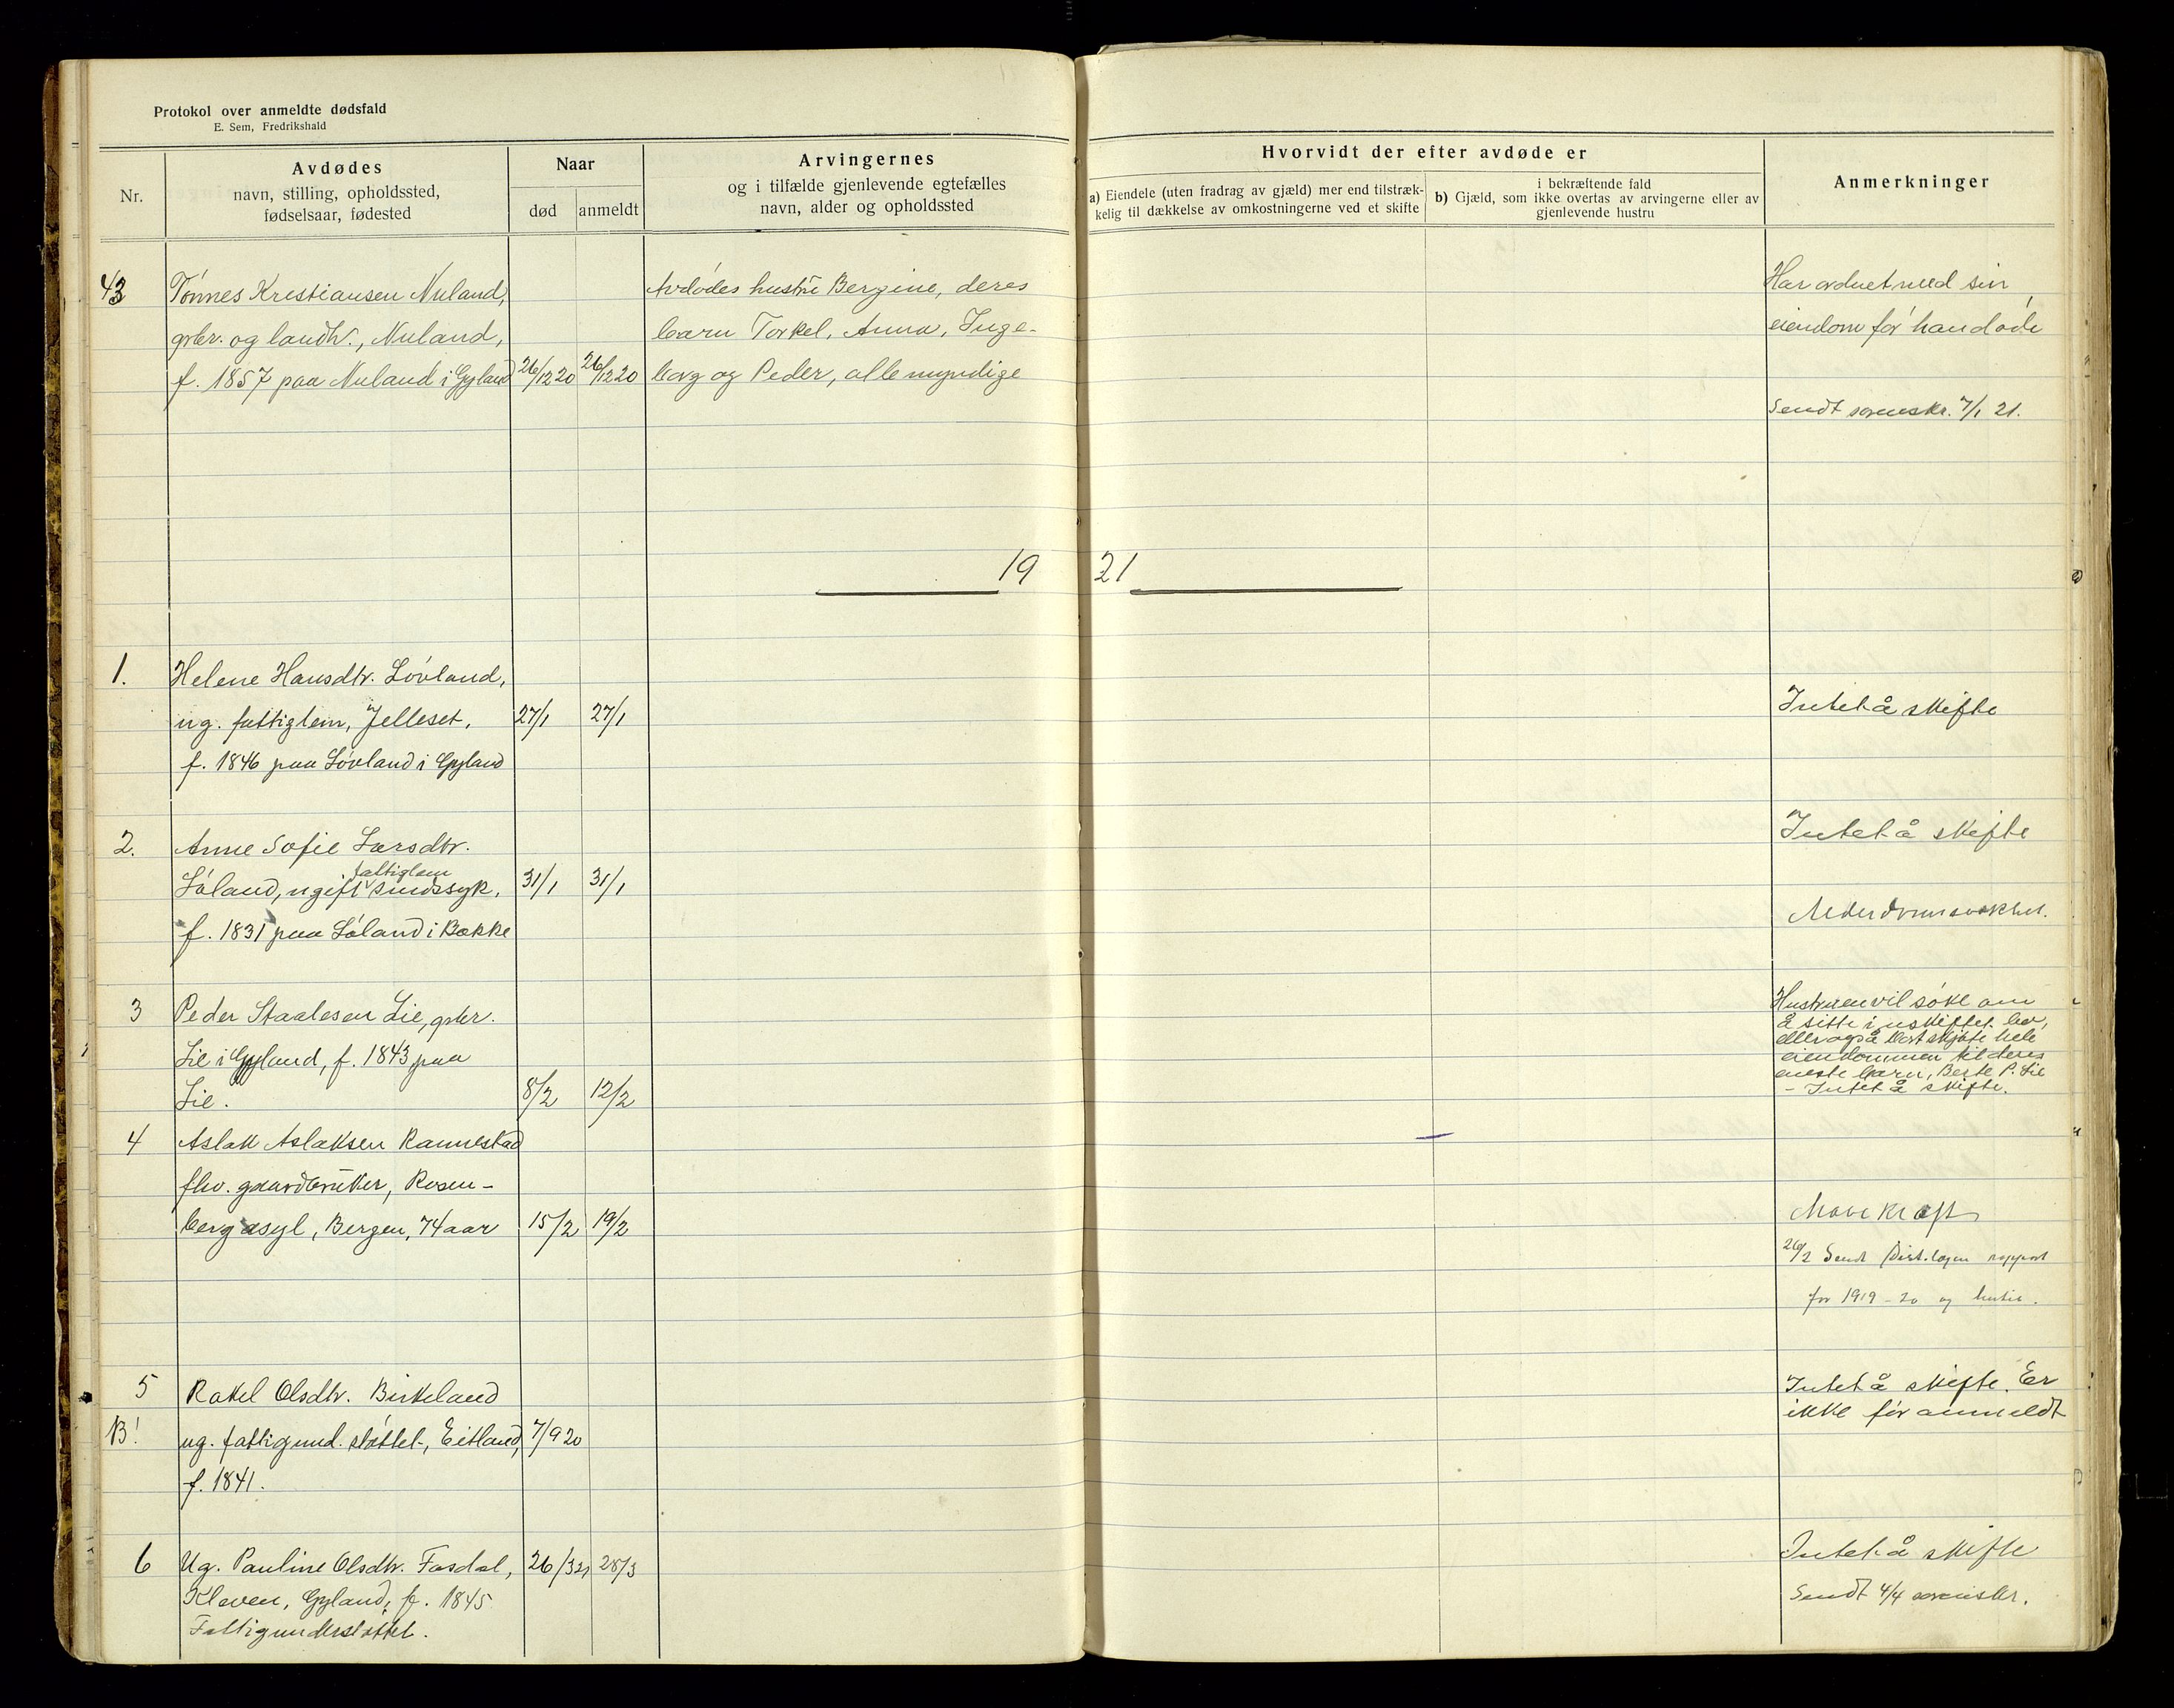 Protokol over anmeldte dødsfald
E. Sem, Fredrikshald
Nr.
Avdødes
navn, stilling, opholdssted,
fødselsaar, fødested
Naar
død
anmeldt
Arvingernes
og i tilfælde gjenlevende egtefælles
navn, alder og opholdssted
Hvorvidt der efter avdøde er
a) Eiendele (uten fradrag av gjæld) mer end tilstræk-
kelig til dækkelse av omkostningerne ved et skifte
i bekræftende fald
b) Gjæld, som ikke overtas av arvingerne eller av
gjenlevende hustru
Anmerkninger
43
Tønnes Kristiansen Nuland,
gbr. og landh., Nuland,
f. 1857 paa Nuland i Gyland
26/12 20
26/12 20
Avdødes hustru Bergine, deres
barn Torkel, Anna, Inge-
borg og Peder, alle myndige
Har ordnet med sin
eiendom før han døde
Sendt sorenskr. 7/1 21.
19 21
1.
Helene Hansdtr. Lövland,
ug. fattiglem, Jelleset,
f. 1846 paa Lövland i Gyland
27/1
27/1
Intet å skifte
2.
Anne Sofie Larsdtr.
fattiglem
Løland, ugift sindssyk,
f. 1831 paa Løland i Bakke
31/1
31/1
Intet å skifte
3
Peder Staalesen Lie, gbr.
Lie i Gyland, f. 1843 paa
Lie.
8/2
12/2
Hustruen vil søke om
å sitte i uskiftet bo,
eller også bortskjøte hele
eiendommen til deres
eneste barn, Berte P. Lie
- Intet å skifte.
4
Aslak Aslaksen Rannestad
fhv. gaardbruker, Rosen-
berg asyl, Bergen, 74 aar
15/2
19/2
26/2 Sendt Dist.lægen rapport
for 1919-20 og
5
B!
Rakel Olsdtr. Birkeland
ug. fattigund. støttet, Eitland,
f. 1841.
7/9 20
Intet å skifte. Er
ikke før anmeldt
6
Ug. Pauline Olsdtr. Fasdal,
Kleven, Gyland, f. 1845
Fattigunderstøttet.
26/3 21
28/3
Intet å skifte
Sendt 4/4 sorenskr.